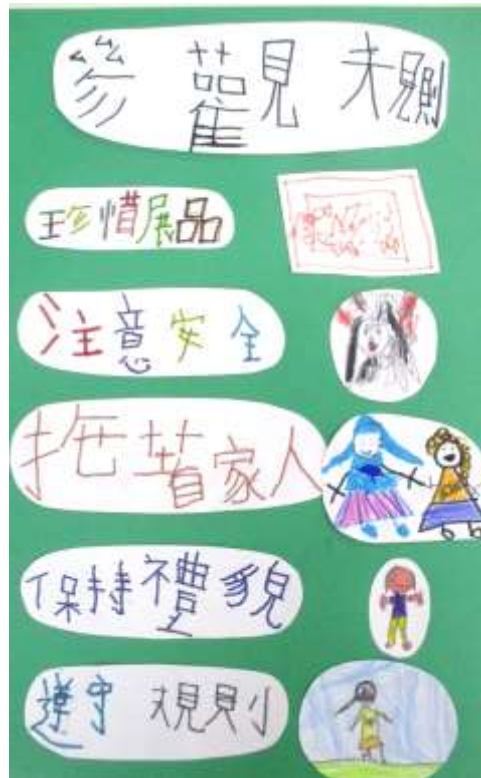 參觀規則
珍惜展品
注意安全
拖著家人
保持禮貌
遵守規則